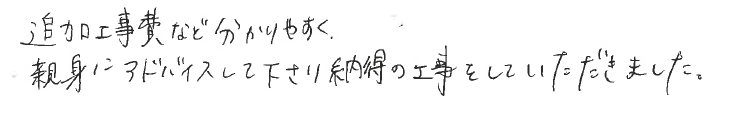 追加工事費など分かりやすく、
親身にアドバイスして下さり納得の工事をしていただきました。